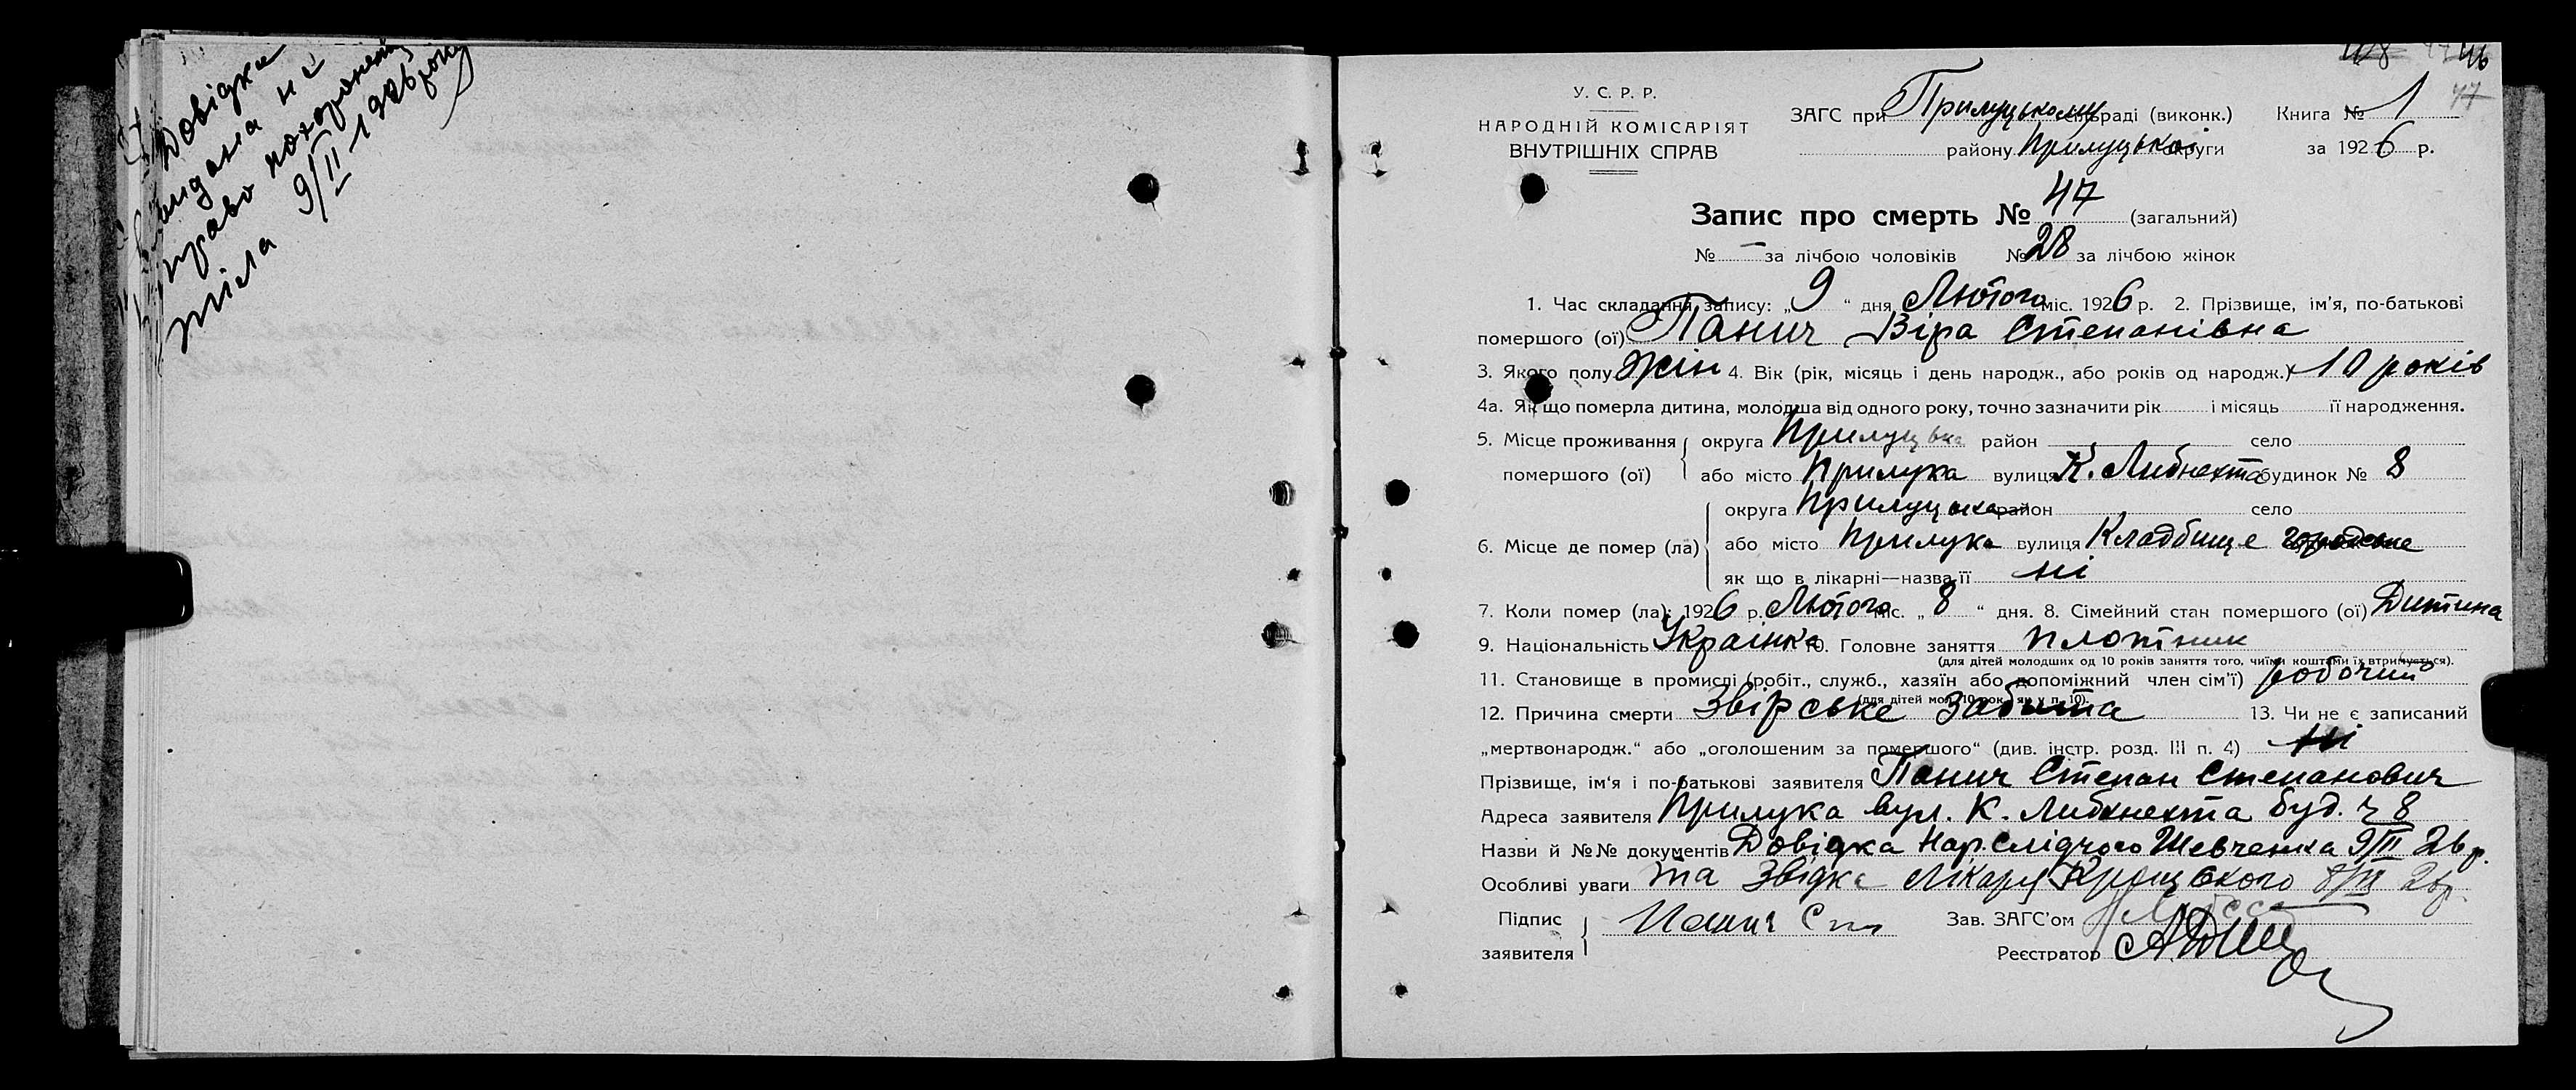 Довідка
видана на
право похоронення
тіла 9/II 1926 року
У. С. Р. Р.
НАРОДНІЙ КОМІСАРІЯТ
ВНУТРІШНІХ СПРАВ
ЗАГС при Прилуцькому раді (виконк.) Книга № 1
району Прилуцької округи за 1926 р.
Запис про смерть № 47 (загальний)
№ — за лічбою чоловіків № 28 за лічбою жінок
1. Час складання запису: „9“ дня Лютого міс. 1926 р. 2. Прізвище, ім’я, по-батькові
помершого (ої) Панич Віра Степанівна
3. Якого полу жін 4. Вік (рік, місяць і день народж., або років од народж.) 10 років
4а. Як що померла дитина, молодша від одного року, точно зазначити рік і місяць її народження.
5. Місце проживання округа Прилуцька район село
помершого (ої) або місто Прилука вулиця К. Либкнехта будинок № 8
округа Прилуцька район село
6. Місце де помер (ла) або місто Прилука вулиця Кладбище
як що в лікарні—назва її ні
7. Коли помер (ла): 1926 р. Лютого міс. „8“ дня. 8. Сімейний стан помершого (ої) Дитина
9. Національність Українка 10. Головне заняття плотник
(для дітей молодших од 10 років заняття того, чиїми коштами їх втримується).
11. Становище в промислі (робіт., служб., хазяїн або допоміжний член сім’ї) робочий
(для дітей мол. 10 рок. як у п. 10).
12. Причина смерти Звірське забита 13. Чи не є записаний
„мертвонародж.“ або „оголошеним за помершого“ (див. інстр. розд. III п. 4) ні
Прізвище, ім‘я і по-батькові заявителя Панич Степан Степанович
Адреса заявителя Прилука вул. К. Либкнехта буд. ч 8
Назви й №№ документів Довідка Нар. Слідчого Шевченка 9/II 26 р.
Особливі уваги та Звідка Лікаря 26 р.
Підпис Панич Ст Зав. ЗАГС’ом
заявителя Реєстратор